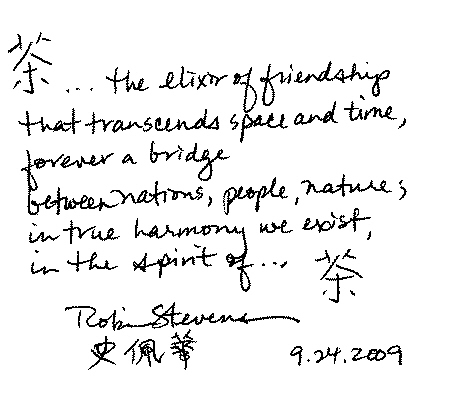 茶 ... the elixir of friendship
that transcends space and time,
forever a bridge
between nations, people, nature;
in true harmony we exist,
in the spirit of ... 茶
Robin Stevens
史佩華 9.24.2009